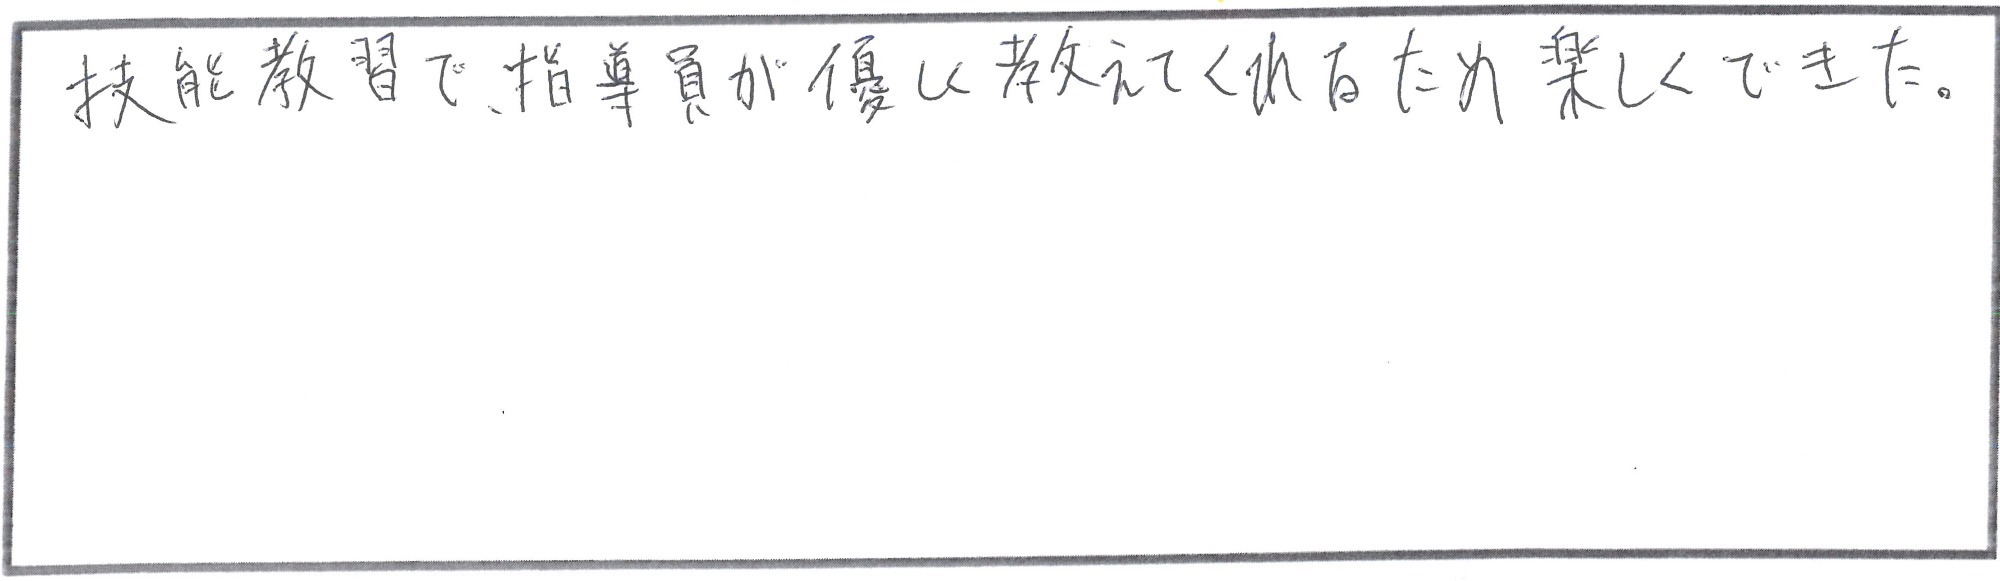 技能教習で、指導員が優しく教えてくれるため楽しくできた。